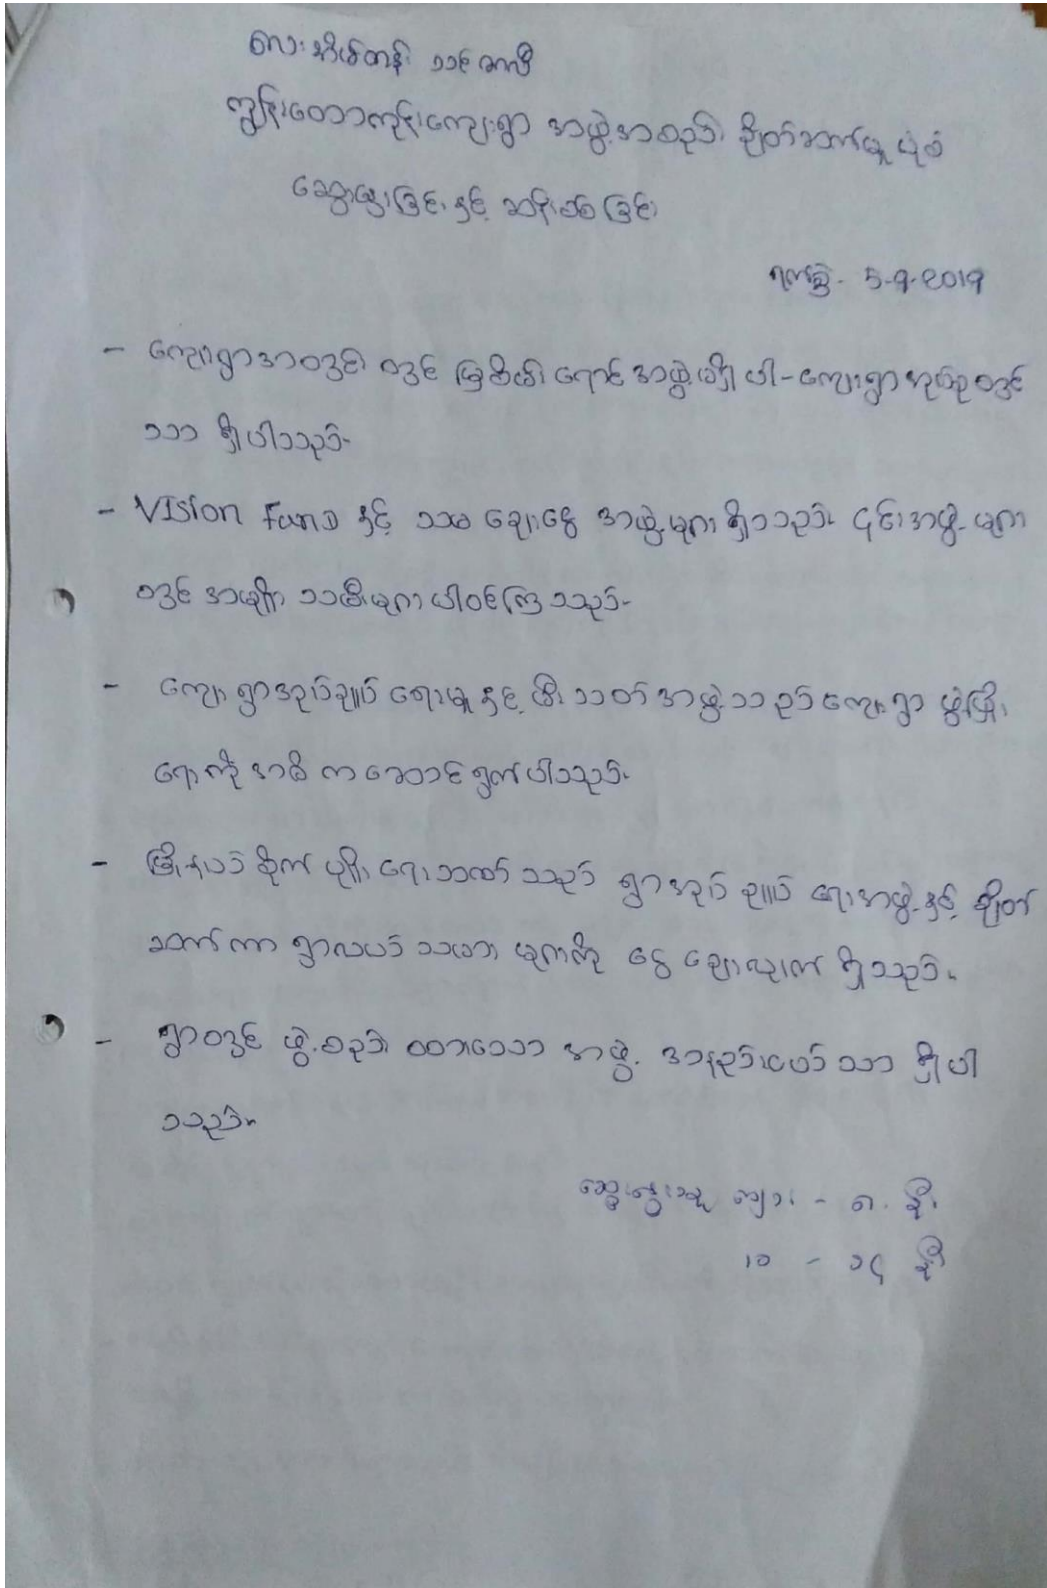 လေးအိမ်တန်း
ကျွန်းတောကုန်းကျေးရွာ အဖွဲ့အစည်း ချိတ်ဆက်မှု ပုံစံ
ဆွေးနွေးခြင်းနှင့် ဆန်းစစ်ခြင်း
ရက်စွဲ- 5-9-2019
- ကျေးရွာအတွင်း တွင် မြို့မိမြို့ဖ အဖွဲ့မရှိပါ - ကျေးရွာအုပ်စုတွင်
သာ ရှိပါသည်။
- VISION Fund နှင့် သမချေးငွေ အဖွဲ့များရှိသည်။ ၎င်းအဖွဲ့များ
တွင် အမျိုးသမီးများပါဝင်ကြသည်။
- ကျေးရွာအုပ်ချုပ်ရေးမှူးနှင့် မီးသတ်အဖွဲ့သည် ကျေးရွာ ဖွံ့ဖြိုး
ရေးကို အဓိကဆောင်ရွက်ပါသည်။
- မြို့နယ်စိုက်ပျိုးရေးဘဏ်သည် ရွာအုပ်ချုပ်ရေးအဖွဲ့နှင့် ချိတ်
ဆက်ကာ ရွာလယ်သမားများကို ငွေချေးလျက်ရှိသည်။
- ရွာတွင် ဖွဲ့စည်းထားသော အဖွဲ့ အနည်းငယ်သာ ရှိပါ
သည်။
ဆွေးနွေးသူ ကျား - ၈ ဦး
မ - ၁၄ ဦး